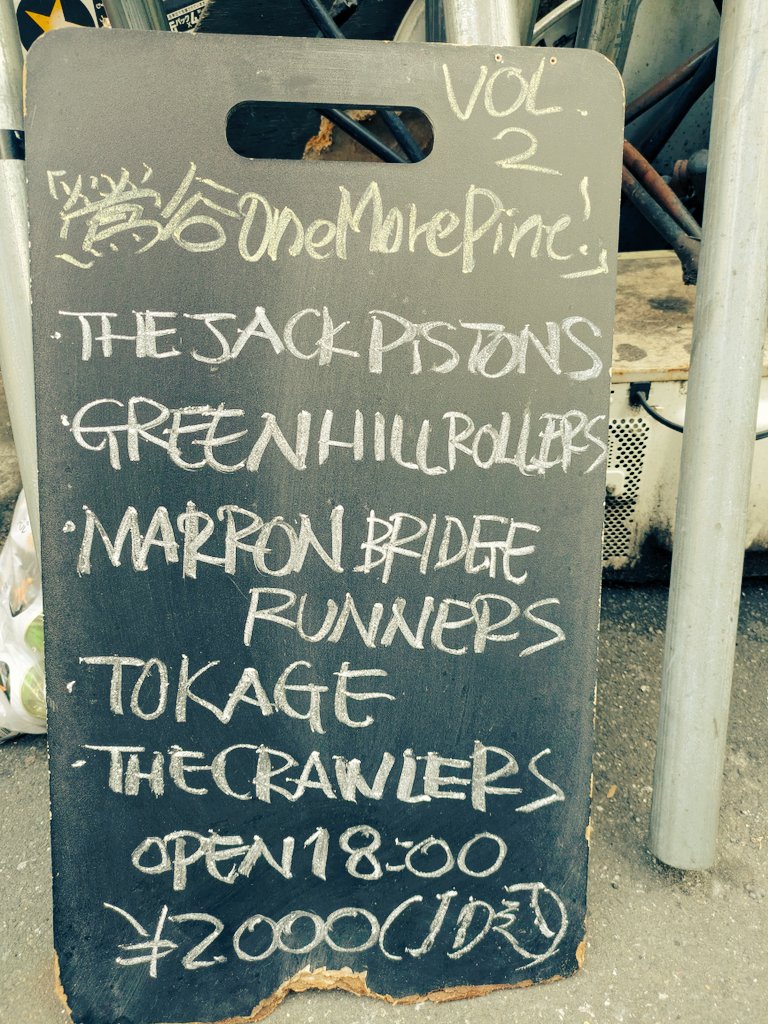 VOL.
2
「OneMorePine!」
・THE JACK PISTONS
・GREENHILL ROLLERS
・MARRON BRIDGE
RUNNERS
・TOKAGE
・THE CRAWLERS
OPEN 18:00
¥2000(1D込)